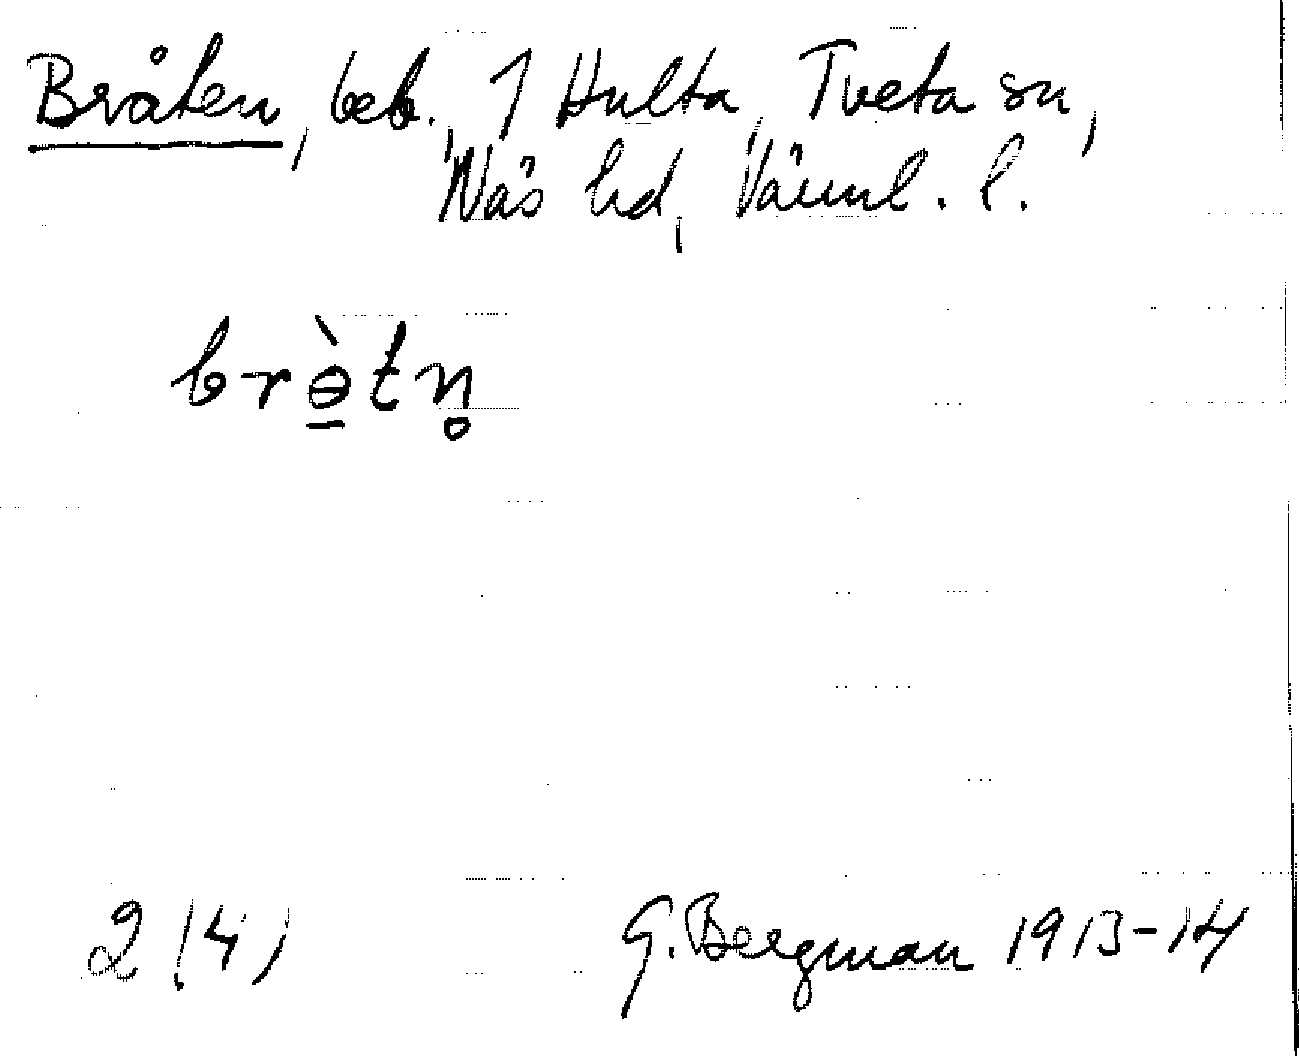 Bråten, beb., 1 Hulta, Tveta sn,
Näs hd, Värml. l.
brə̳̀tn̥
2 (4)
G. Bergman 1913-14